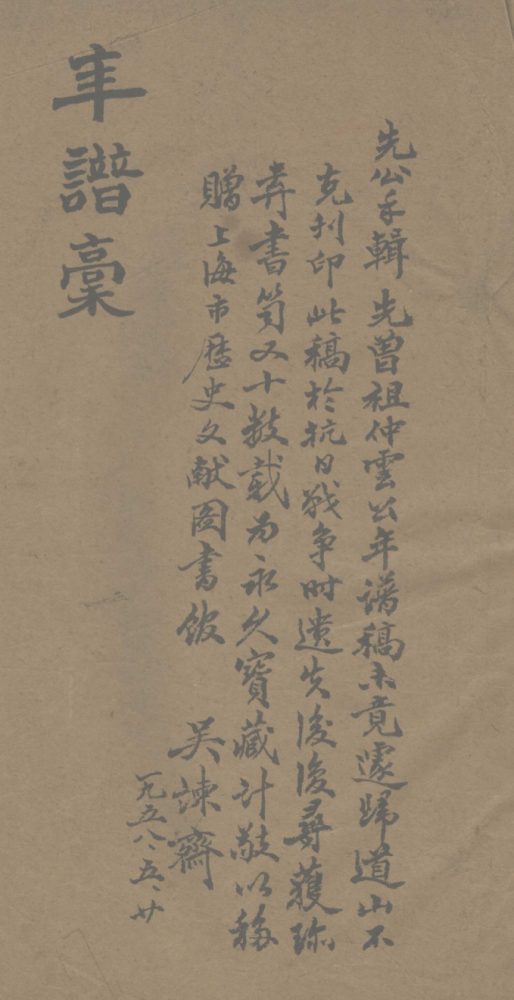 先公手輯 先曾祖仲雲公年譜稿未竟遽歸道山不
克刊印此稿於抗日战争时遺失後復尋獲珎
弆書笥又十数载为永久寶藏计敬以移
贈上海市歷史文献图書馆
吴諫齋
一九五八、五、廿
年譜稾